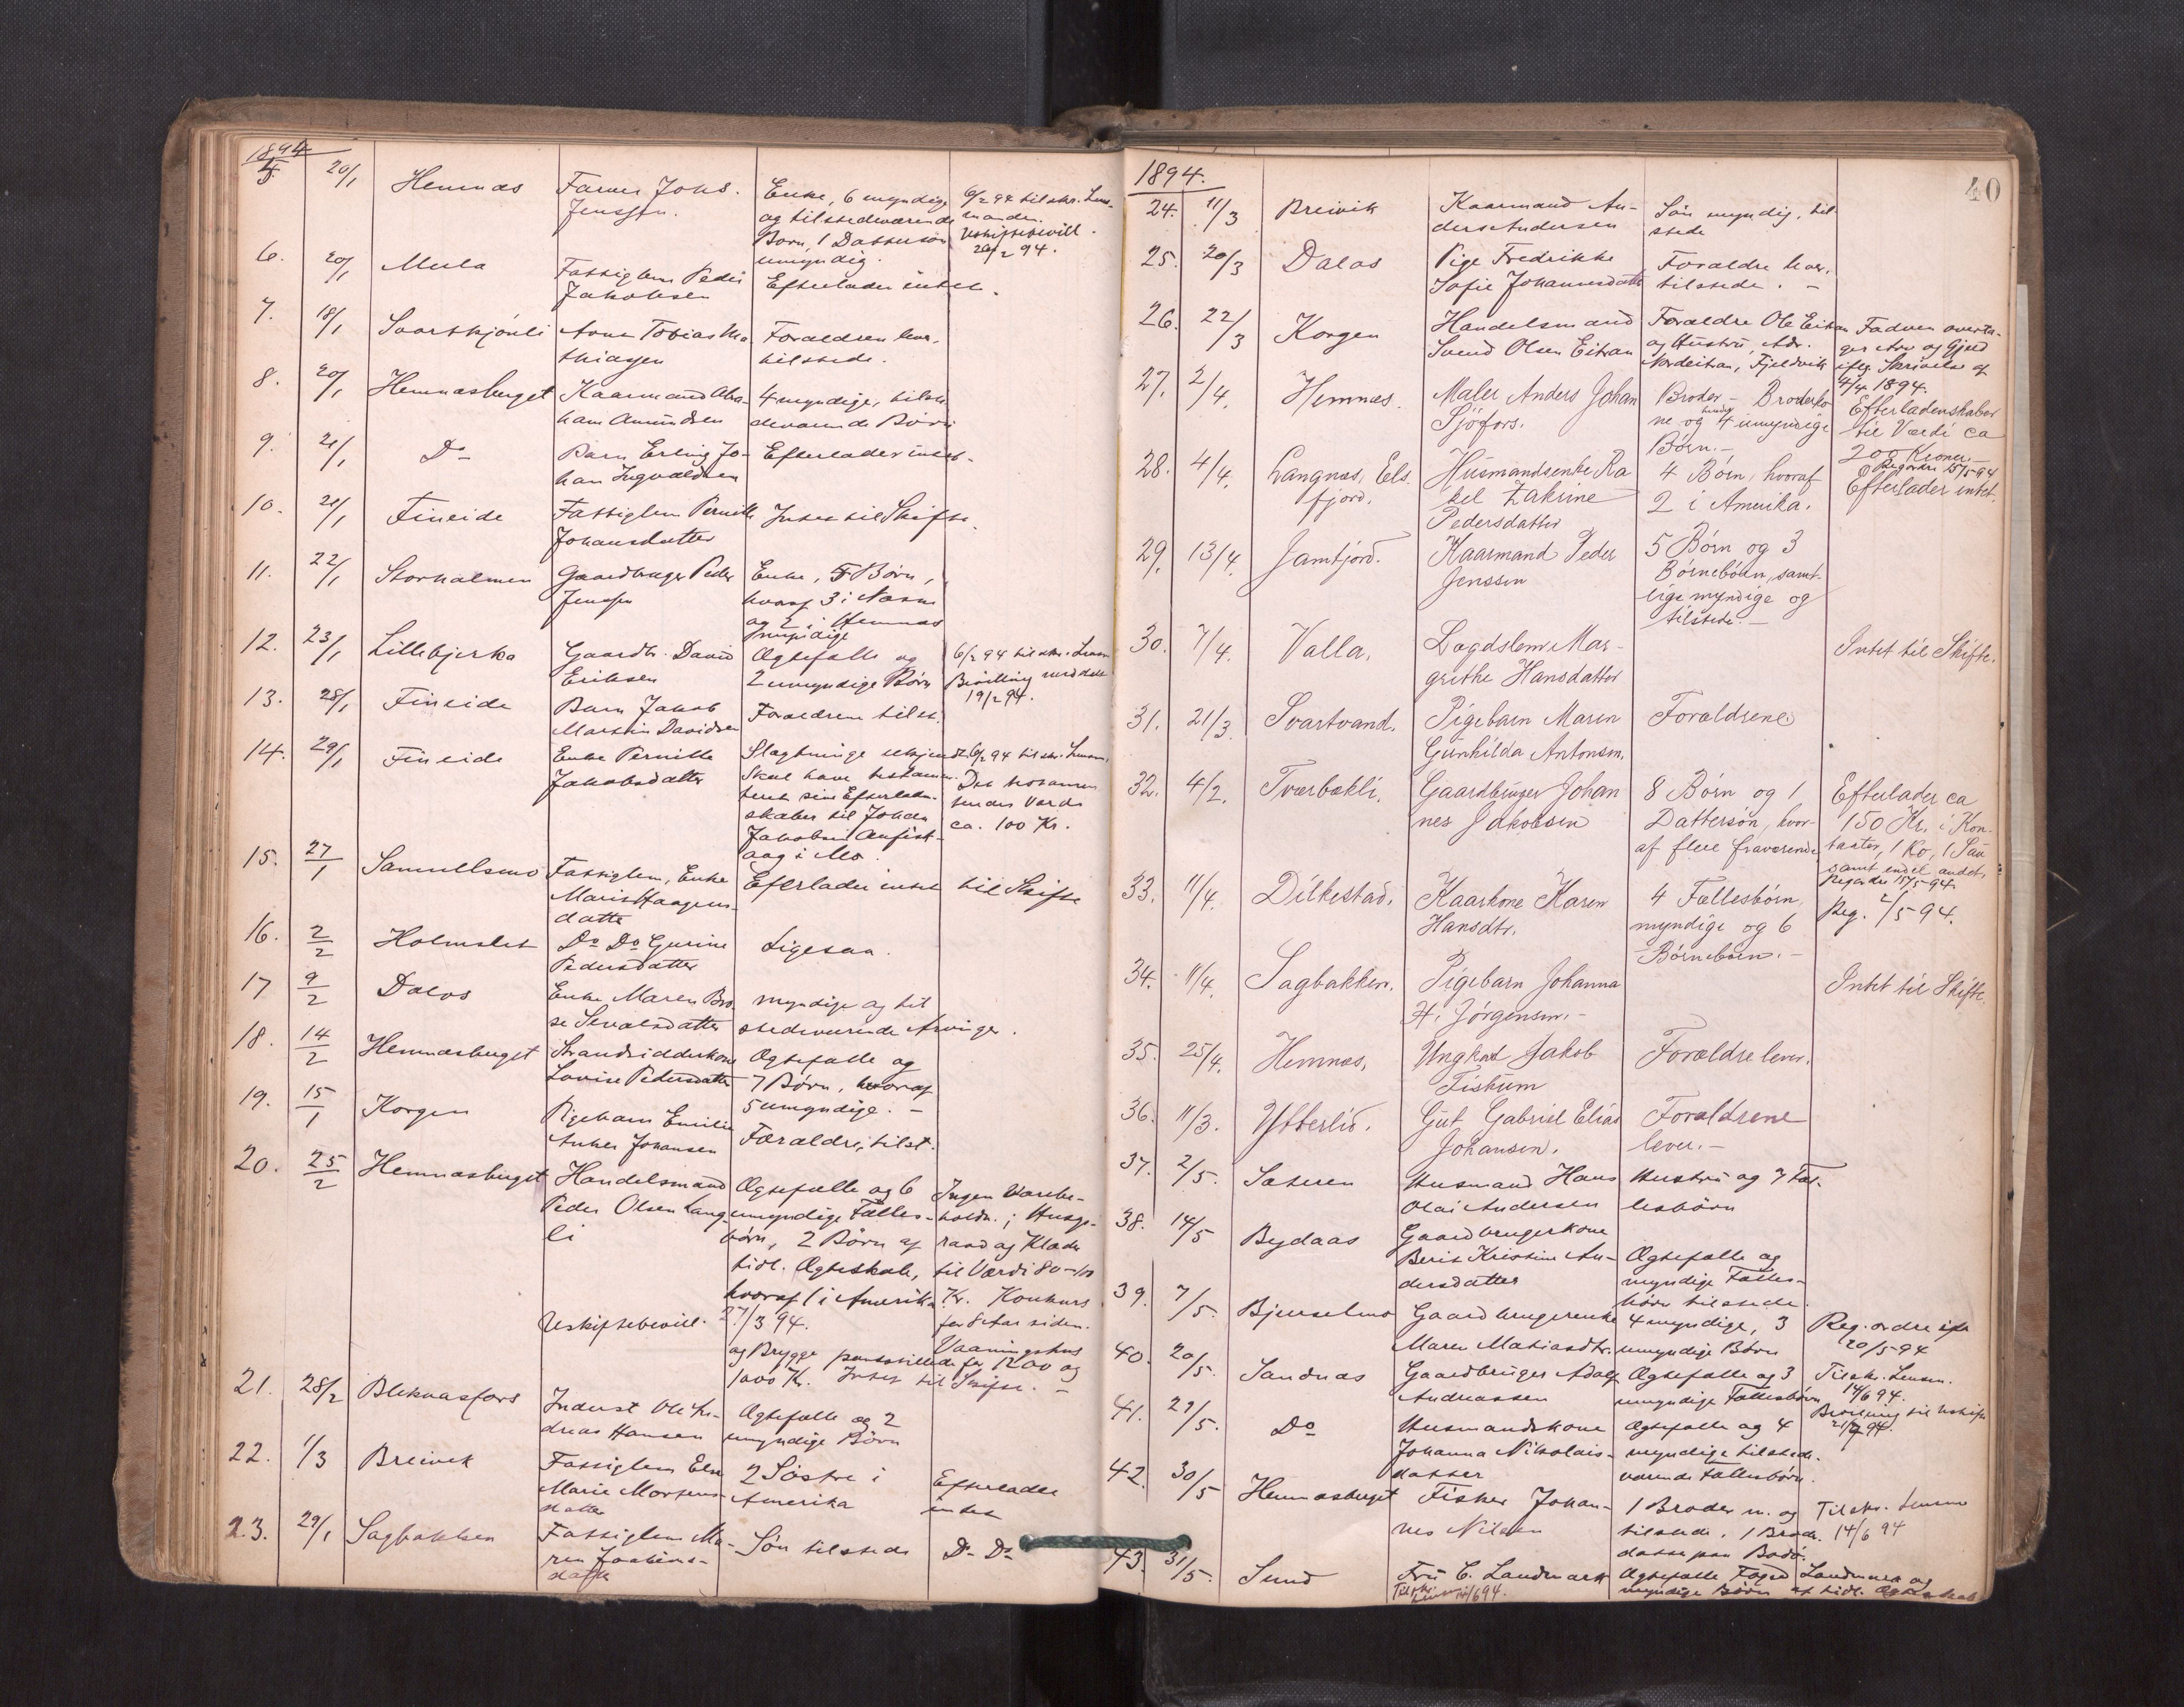 1894
5 20/1 Hemnæs Farver Johs. Enke, 6 myndige 6/2 94 tilskr. Lens-
Jenssen. og tilstedeværende manden.
Børn, 1 Dattersøn Uskiftebevill.
umyndig. 94.
6. 20/1 Fattiglem Peder Efterlader intet.
Jakobsen
7. 18/1 Tobias Ma Forældrene lever,
thiassen tilstede.
8. 20/1 Hemnæsberget Kaarmand Abra- 4 myndige, tilste
ham Amundsen deværende Børn
9. 21/1 Do Barn Erling Jo- Efterlader intet.
han Ingvaldsen
10. 21/1 Fineide Fattiglem Pernille Intet til Skifte.
Johansdatter
11. 22/1 Storholmen Gaardbruger Peder Enke, 5 Børn,
Jenssen hvoraf 3 i Næsne
og 2 i Hemnæs
myndige
12. 23/1 Lillebjerka Gaardbr. David Ægtefælle og 6/2 94 tilskr. Lensm
Eriksen 2 umyndige Børn Bevilling meddelt
19/2 94.
13. 28/1 Fineide Barn Jakob Forældrene tilst.
Martin Davidsen
14. 29/1 Fineide Enke Pernille Slægtninge ukjendt 6/2 94 tilskr. Lensm.
Jakobsdatter Skal have testamen-
teret sine Efterladen-
skaber til Johan ca. 100 Kr.
Jakobsen
i Mo.
15. 27/1 Samuelsmo Fattiglem, Enke Efterlader intet til Skifte
Haagens-
datter
16. 2/2 Do Do Gurine Ligesaa.
Pedersdatter
17 9/2 Dalos Enke Maren myndige og til
stedeværende Arvinger.
18. 14/2 Hemnæsberget Strandsidderkone Ægtefælle og
Lovise Pedersdatter 7 Børn, hvoraf
5 umyndige. -
19. 15/1 Korgen Pigebarn Emilie Forældre, tilst.
Johansen
20. 25/2 Hemnæsberget Handelsmand Ægtefælle og 6 Ingen Varebe-
Peder Olsen Lang- umyndige Fælles- holdn. ; Husge-
li børn, 2 Børn af raad og Klæder
tidl. Ægteskab, til Værdi 80-100
hvoraf 1 i Amerika Kr. Konkurs
Uskiftebevill. 27/3 94. for 8 Aar siden.
Vaaningshus
og Brygge pantstillede for 1200 og
1000 Kr. Intet til Skifte. -
21. 28/2 Bleknæsfors Inderst Ole An- Ægtefælle og 2
dreas Hansen umyndige Børn
22. 1/3 Breivik Fattiglem Else 2 Søstre i Efterlader
Marie Mortens- Amerika intet
datter
23. 29/1 Sagbakken Fattiglem Ma- Søn tilstede Do Do
ren
datter
40
1894.
24. 11/3 Breivik Kaarmand An- Søn myndig, til-
ders Andersen stede
25. 20/3 Dalos Pige Fredrikke Forældre lever,
Sofie Johannesdatter tilstede. -
26. 22/3 Korgen Handelsmand Forældre Ole Eitran Faderen overta-
Svend Olsen Eitran og Hustru, Adr. ger Arv og Gjæld
Fjeldvik ifølg. Skrivelse af
4/4 1894.
27. 2/4. Hemnæs. Maler Anders Johan Broder - Broderko Efterladenskaber
Sjöfors. ne og 4 umyndige til Værdi ca
Børn. - 200 Kroner. -
Regordre 15/5 94
28. 4/4. Langnæs, Els. Husmandsenke Ra 4 Børn, hvoraf Efterlader intet.
fjord. kel Zakrine 2 i Amerika.
Pedersdatter
29. 13/4. Jamtjord. Kaarmand Peder 5 Børn og 3
Jenssen Børnebørn, samt-
lige myndige og
tilstede. -
30. 7/4. Valla. Lægdslem Mar- Intet til Skifte.
grethe Hansdatter
31. 21/3 Svartvand. Pigebarn Maren Forældrene
Gunhilda Antonsen.
32. 4/2. Tværbækli. Gaardbruger Johan 8 Børn og 1 Efterlader ca
nes Jakobsen Dattersøn, hvor- 150 Kr. i Kon-
af flere fraværende tanter, 1 Ko, 1 Sau
samt endel andet.
Regordre 15/5 94
33. 11/4. Dilkestad. Kaarkone Karen 4 Fællesbørn, Reg. 2/5 94.
Hansdtr. myndige og 6
Børnebørn. -
34. 11/4. Sagbakken. Pigebarn Johanna Intet til Skifte.
H. Jørgensen. -
35. 25/4. Hemnæs. Ungkarl Jakob Forældre lever.
Fiskum
36. 11/3. Ytterlid. Gut Gabriel Elias Forældrene
Johansen. lever. -
37. 2/5. Sæteren Husmand Hans Hustru og 7 Fæl-
Olai Andersen lesbørn
38. 14/5 Bydaas Gaardbrugerkone
Berit Kristine An- Ægtefælle og
dersdatter myndige Fælles-
børn tilstede.
39. 7/5. Bjurselmo Gaardbrugerenke 4 myndige, 3 Reg. ordre
Maren Matiasdtr. umyndige Børn 20/5 94
40. 20/5. Sandnæs Gaardbruger Adolf Ægtefælle og 3 Tilskr. Lensm.
Andreassen umyndige Fællesbørn 14/6 94.
Bevilling til Uskifte
94.
41. 29/5. Do Husmandskone Ægtefælle og 4
Johanna Nikolais- myndige tilstede-
datter værende Fællesbørn.
42. 30/5 Hemnæsberget Fisker Johan- 1 Broder m. og Tilskr. Lensm
nes Nilsen tilstede, 1 Broder- 14/6 94
datter paa Bodø.
43. 31/5. Sund Fru C. Landmark Ægtefælle Foged Landmark og
Tilskr. Lensm 14/6 94. myndige Børn af tidl. Ægteskab